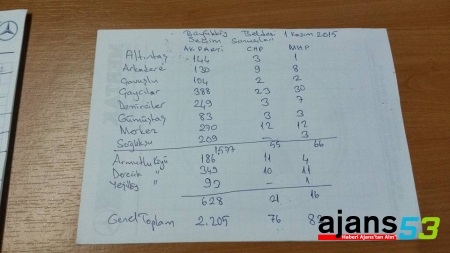 Büyükköy Beldesi 1 Kasım 2015
Seçim Sonuçları
AK.PARTİ CHP MHP
Altıntaş 144 3 1
Arkadere 130 9 8
104 2 2
Çaycılar 388 23 30
Demirciler 249 3 7
Gümüştaş 83 3 3
Merkez 270 12 12
Soğuksu 209 - 3
1,577 55 66
Armutlu Köyü 186 11 4
349 10 11
Yeşilköy " - 1
628 21 16
Genel Toplam 2.205 76
ajans53
Haberi Ajans'tan Alın